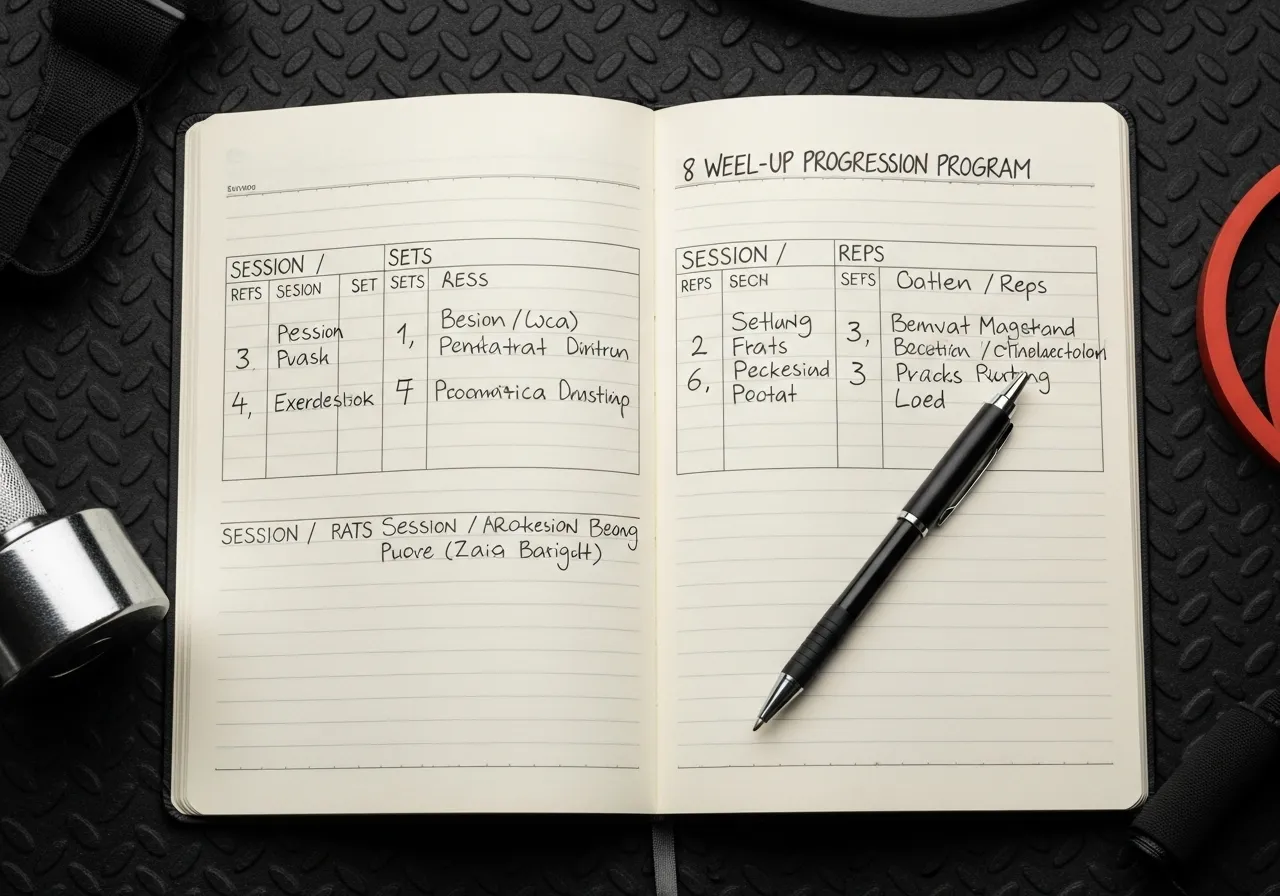 SESSION / SETS
REFS SESION SET SETS RESS
Pession 1, Besion / (wca)
3. Pvash Penitatrat Dinitrun
4, Exerdesbok 7 Pcomatica Drustinp
SESSION / RATS Session / ARokesion Beong
Puove (Zaia Barigclt)
8 WEEL-UP PROGRESSION PROGRAM
SESSION / REPS
REPS SECH SEFS Oatlen / Reps
2 Setlung 3, Bemvat Magstand
Frats Becetion / cTinelaectolon
6, Peckesiud 3 Pracks
Pootat Loed